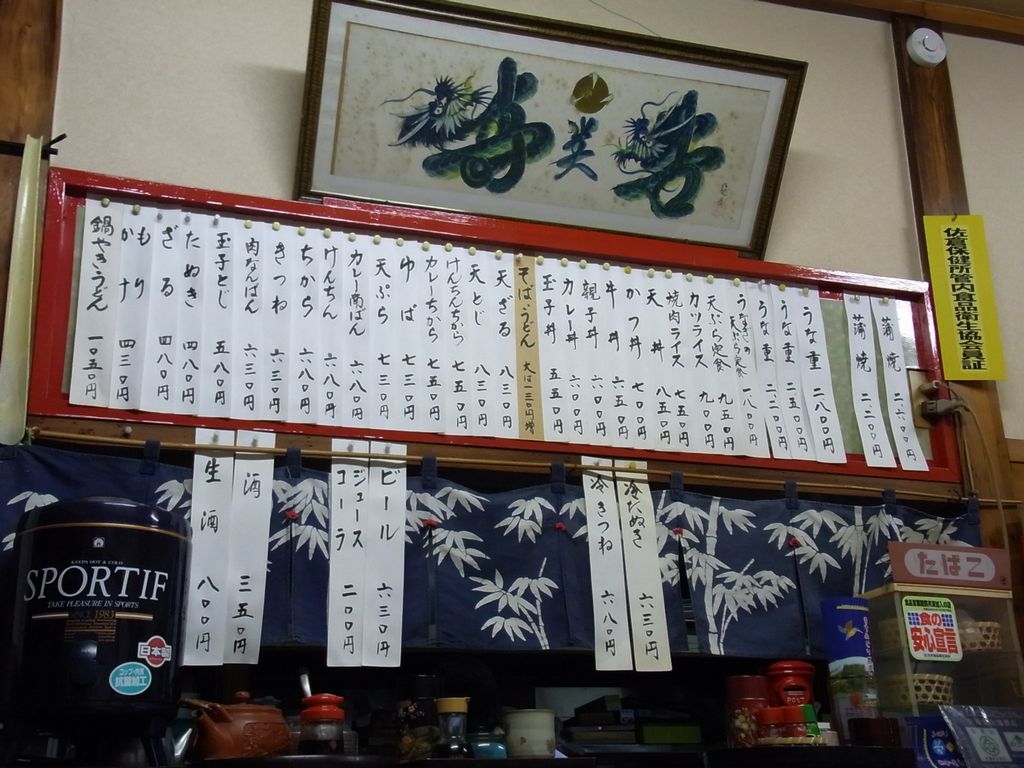 寿
美
佐倉保健所管内食品衛生協会員証
蒲焼 二六〇〇円
蒲焼 二二〇〇円
うな重 二八〇〇円
うな重 二五〇〇円
うな重 二二〇〇円
うなぎの天ぷら定食 一八〇〇円
天ぷら定食 九五〇円
カツライス 九〇〇円
焼肉ライス 七五〇円
天丼 八五〇円
かつ丼 七〇〇円
牛丼 六五〇円
親子丼 六〇〇円
カレー丼 六〇〇円
玉子丼 五五〇円
そば、うどん 大は一三〇円増
天ざる 八三〇円
天とじ 八三〇円
けんちんちから 七五〇円
カレーちから 七五〇円
ゆば 七三〇円
天ぷら 七三〇円
カレー南ばん 六八〇円
けんちん 六八〇円
ちから 六八〇円
きつね 六三〇円
肉なんばん 六三〇円
玉子とじ 五八〇円
たぬき 四八〇円
ざる 四八〇円
もり
かけ 四三〇円
鍋やきうどん 一〇五〇円
冷たぬき 六三〇円
冷きつね 六八〇円
ビール 六三〇円
ジュース
コーラ 二〇〇円
酒 三五〇円
生酒 八〇〇円
KEEPS HOT & COLD
SPORTIF
TAKE PLEASURE IN SPORTS
1983
日本製
抗菌加工
たばこ
食の
安心宣言
POST